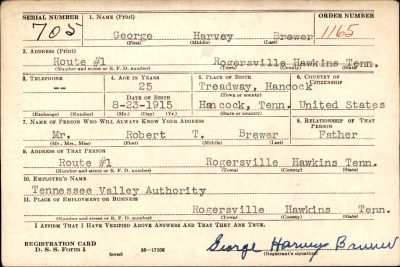 SERIAL NUMBER 1. NAME (Print) ORDER NUMBER
705 George Harvey Brewer 1165
(First) (Middle) (Last)
2. ADDRESS (Print)
Route #1 Rogersville Hawkins Tenn.
(Number and street or R. F. D. number) (Town) (County) (State)
3. TELEPHONE 4. AGE IN YEARS 5. PLACE OF BIRTH 6. COUNTRY OF CITIZENSHIP
-- 25 Treadway, Hancock
DATE OF BIRTH (Town or county)
8-23-1915 Hancock, Tenn. United States
(Exchange) (Number) (Mo.) (Day) (Yr.) (State or country)
7. NAME OF PERSON WHO WILL ALWAYS KNOW YOUR ADDRESS 8. RELATIONSHIP OF THAT PERSON
Mr. Robert T. Brewer Father
(Mr., Mrs., Miss) (First) (Middle) (Last)
9. ADDRESS OF THAT PERSON
Route #1 Rogersville Hawkins Tenn.
(Number and street or R. F. D. number) (Town) (County) (State)
10. EMPLOYER'S NAME
Tennessee Valley Authority
11. PLACE OF EMPLOYMENT OR BUSINESS
Rogersville Hawkins Tenn.
(Number and street or R. F. D. number) (Town) (County) (State)
I AFFIRM THAT I HAVE VERIFIED ABOVE ANSWERS AND THAT THEY ARE TRUE.
REGISTRATION CARD George Harvey Brewer
D. S. S. Form 1 (over) 16-17105 (Registrant's signature)